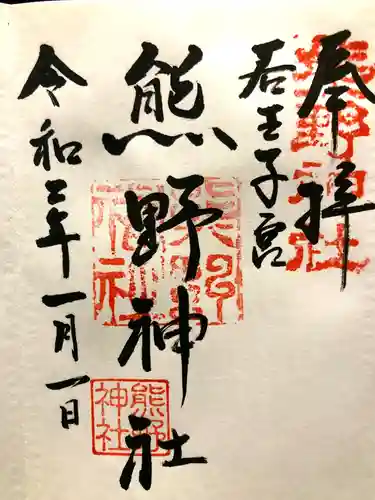 奉拝
若王子宮
熊野神社
令和二年一月一日
熊野
神社